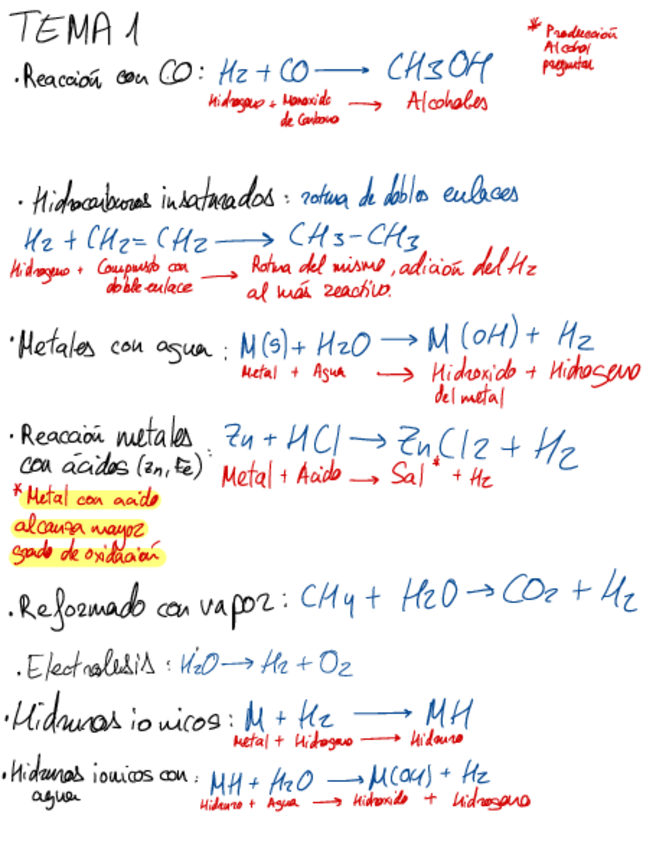 TEMA 1
* Producción
Alcohol
preguntar
· Reacción con CO: H2 + CO → CH3OH
Hidrogeno + Monoxido → Alcoholes
de Carbono
· Hidrocarburos insaturados: rotura de dobles enlaces
H2 + CH2 = CH2 → CH3-CH3
Hidrogeno + Compuesto con → Rotura del mismo, adición del H2
doble enlace al más reactivo.
· Metales con agua: M(s) + H2O → M(OH) + H2
Metal + Agua → Hidroxido + Hidrogeno
del metal
· Reacción metales : Zn + HCl → ZnCl2 + H2
con ácidos (Zn, Fe) Metal + Acido → Sal* + H2
* Metal con acido
alcanza mayor
grado de oxidación
· Reformado con vapor: CH4 + H2O → CO2 + H2
· Electrolisis: H2O → H2 + O2
· Hidruros ionicos: M + H2 → MH
Metal + Hidrogeno → Hidruro
· Hidruros ionicos con: MH + H2O → M(OH) + H2
agua Hidruro + Agua → Hidroxido + Hidrogeno